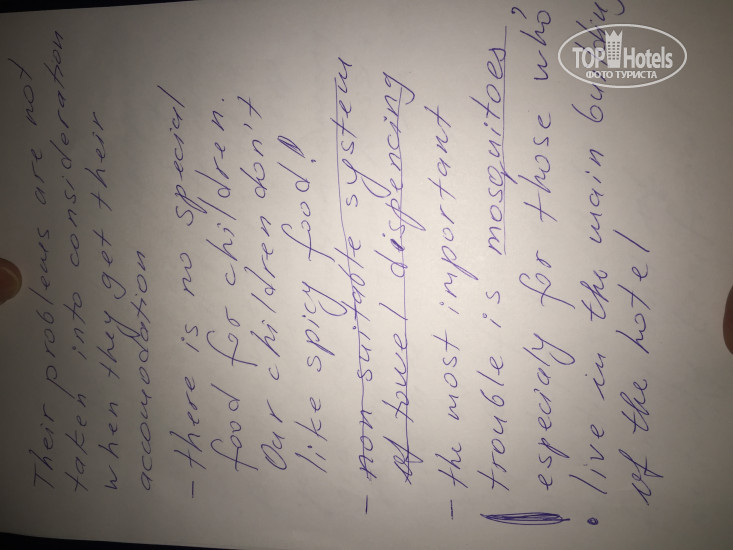 Their problems are not
taken into consideration
when they get their
accomodation
- there is no special
food for children.
Our children don't
like spicy food!
- non suitable system
of towel dispencing
- the most important
trouble is mosquitoes
especialy for those who
live in the main building
of the hotel
TOP Hotels
ФОТО ТУРИСТА